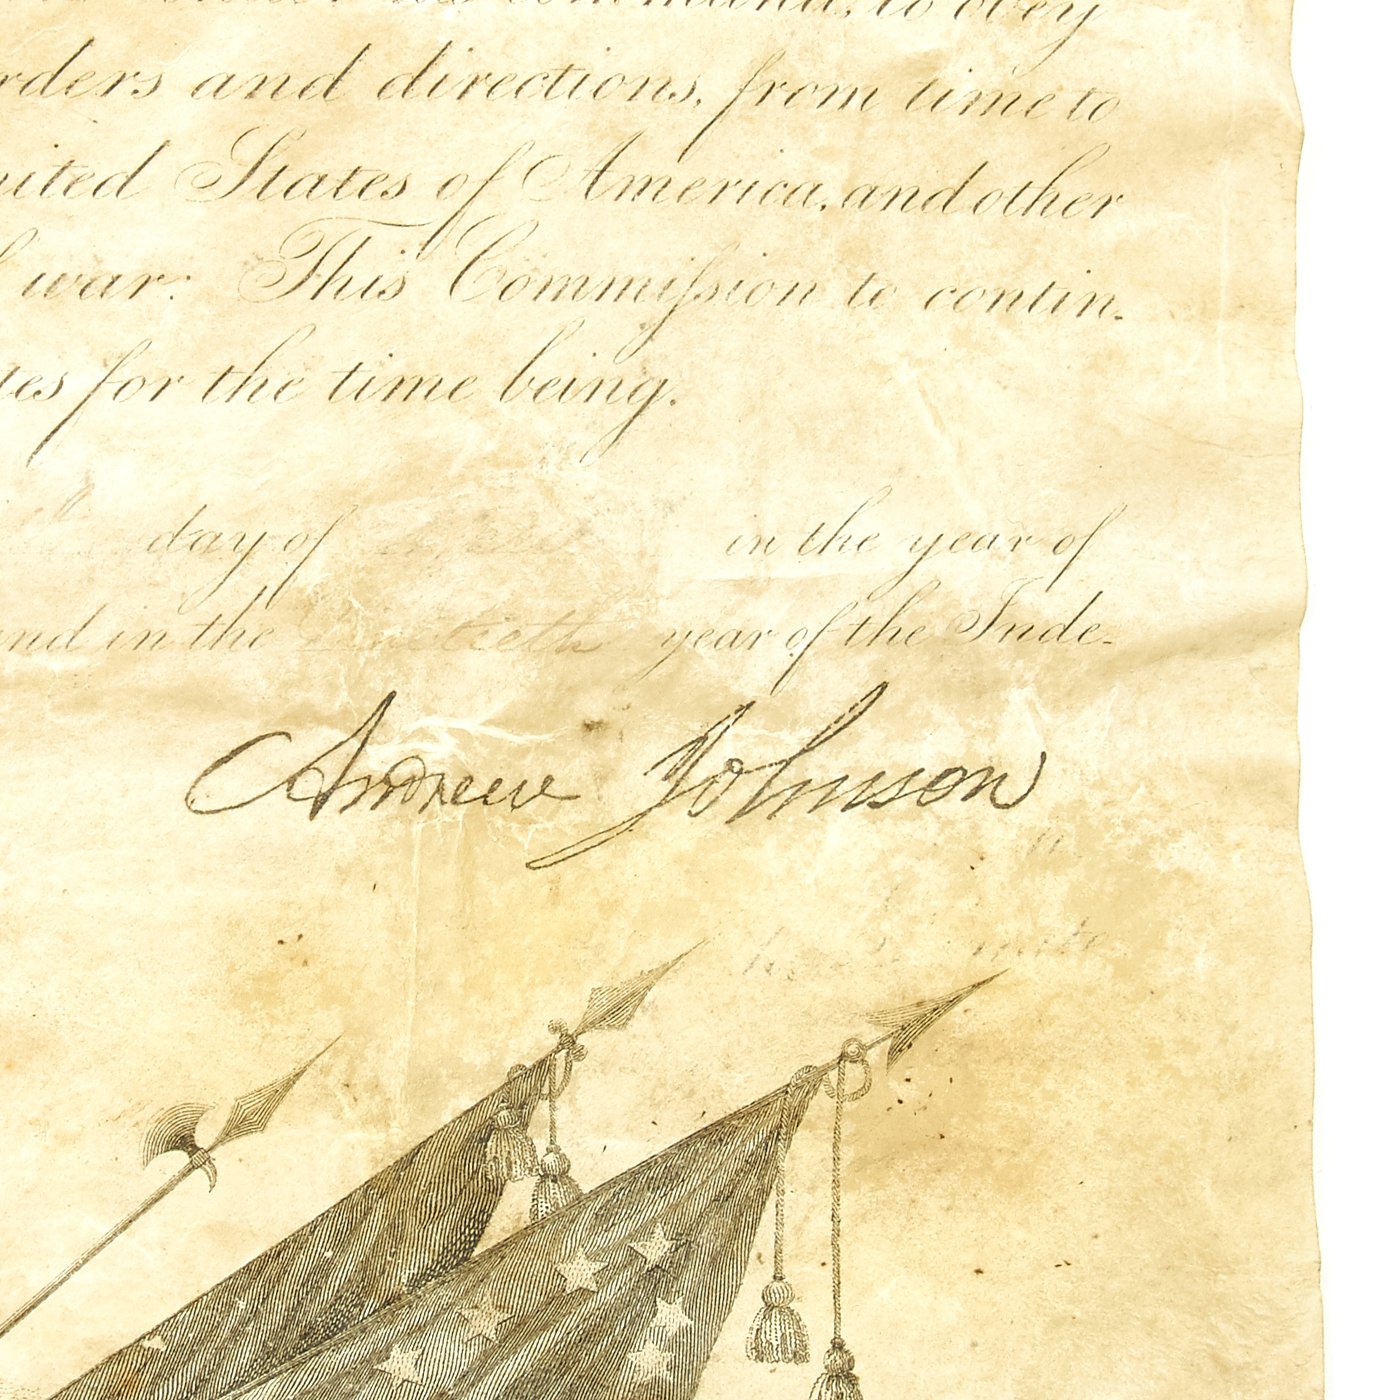 command, to obey
rders and directions, from time to
nited States of America, and other
war: This Commission to contin-
tes for the time being.
day of in the year of
and in the year of the Inde-
Andrew Johnson